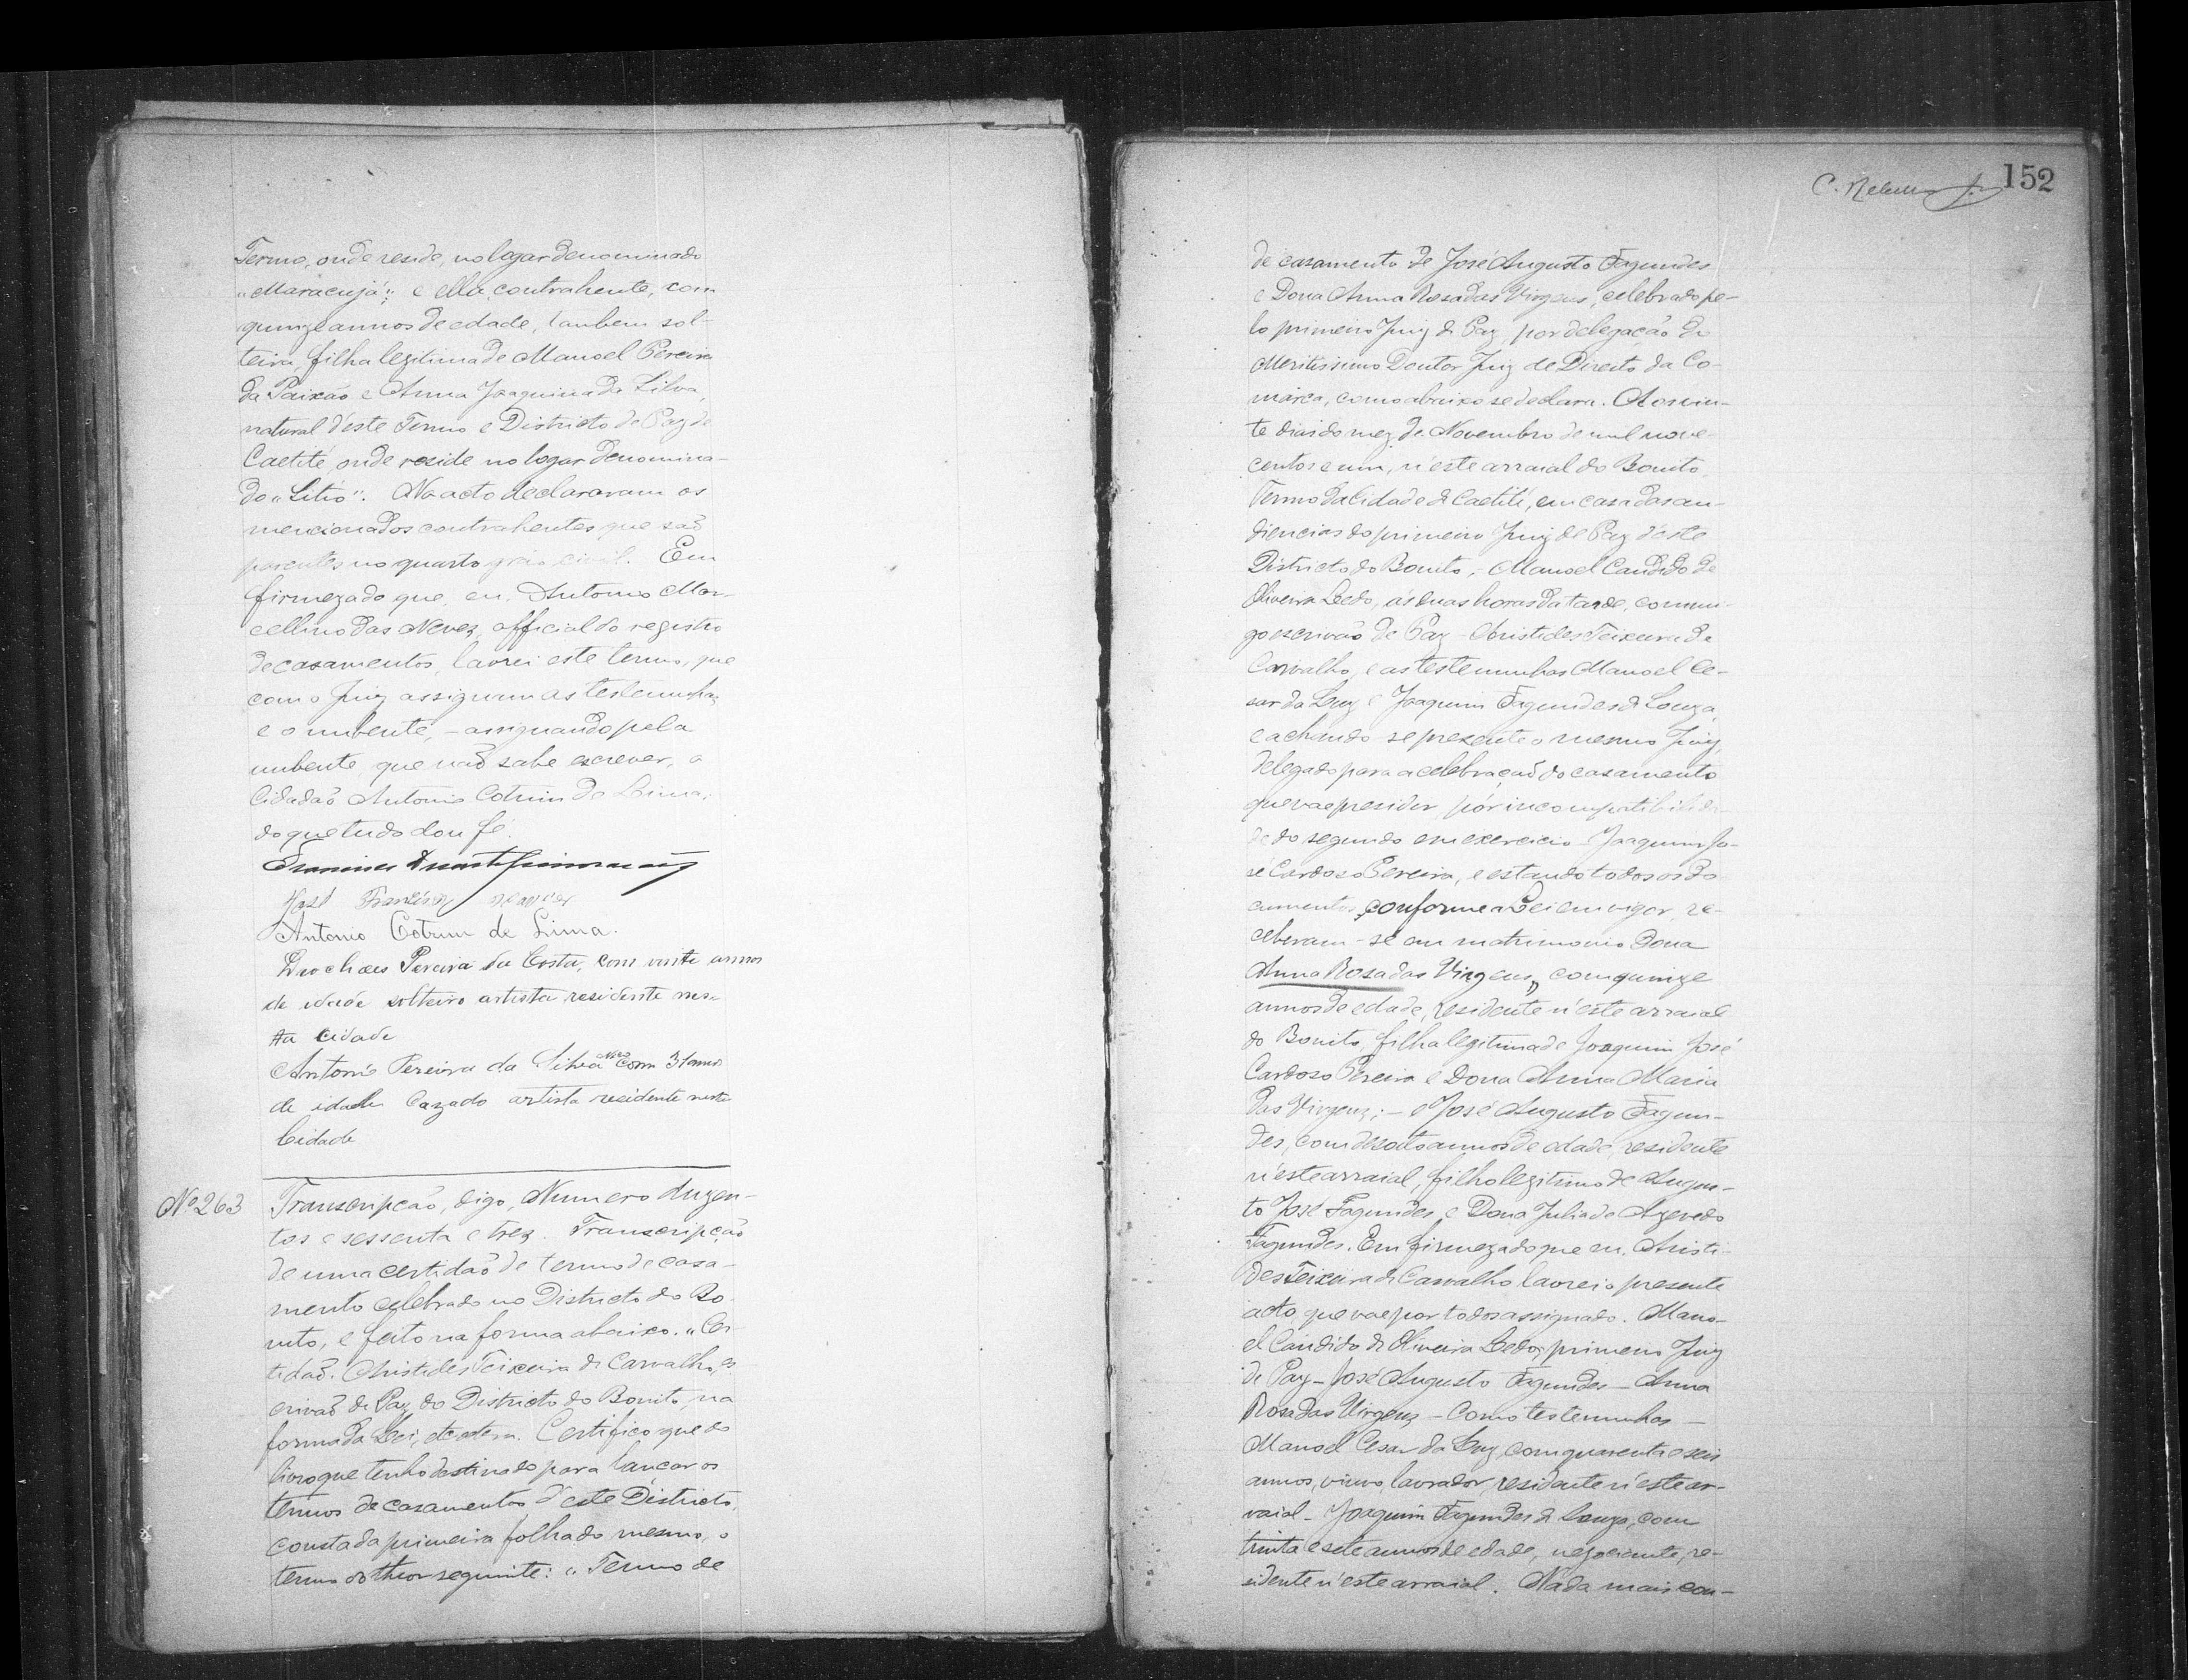 Termo, onde reside, no logar denominado
"Maracujá"; e ella contrahente, com
quinze annos de edade, tambem sol-
teira, filha legitima de Manoel Pereira
da Paixão e Anna Joaquina da Silva,
natural d'este Termo e Districto de Paz de
Caetité, onde reside no logar denomina-
do "Sitio". No acto declararam os
mencionados contrahentes que são
parentes no quarto gráo civil. Em
firmeza do que, eu, Antonio Mar-
cellino das Neves, official do registro
de casamentos, lavrei este termo, que
com o Juiz assignam as testemunhas
e o nubente, - assignando pela
nubente, que não sabe escrever, o
Cidadão Antonio Cotrim de Lima;
do que tudo dou fé.
José Francisco
Antonio Cotrim de Lima.
Pereira da Costa, com vinte annos
de idade solteiro artista residente nes-
ta cidade
Antonio Pereira da Silva com 31 annos
de idade Cazado artista residente nesta
Cidade
Nº 263
Transcripção, digo, Numero duzen-
tos e sessenta e trez. Transcripção
de uma certidão de termo de casa-
mento celebrado no Districto do Bo-
nito, e feito na forma abaixo. "Cer-
tidão. Aristides Teixeira de Carvalho, es-
crivão de Paz do Districto do Bonito, na
forma da Lei, etcetera. Certifico que do
livro que tenho destinado para lançar os
termos de casamentos d'este Districto,
consta da primeira folha do mesmo, o
termo do theor seguinte: "Termo de
152
de casamento de José Augusto Fagundes
e Dona Anna Rosa das Virgens, celebrado pe-
lo primeiro Juiz de Paz, por delegação do
Meritissimo Doutor Juiz de Direito da Co-
marca, como abaixo se declara. Aos vin-
te dias do mez de Novembro de mil nove-
centos e um, n'este arraial do Bonito,
Termo da Cidade de Caetité, em casa das au-
diencias do primeiro Juiz de Paz d'este
Districto do Bonito, Manoel Candido de
Oliveira Ledo, ás duas horas da tarde, commi-
go escrivão de Paz - Aristides Teixeira de
Carvalho, e as testemunhas Manoel Ce-
sar da Luz e Joaquim Fagundes de Souza,
e achando-se presente o mesmo Juiz,
delegado para a celebração do casamento
que vae presidir, por incompatibilida-
de do segundo em exercicio Joaquim Jo-
sé Cardoso Pereira, e estando todos os do-
cumentos, conforme a Lei em vigor, re-
ceberam-se em matrimonio Dona
Anna Rosa das Virgens, com quinze
annos de edade, residente n'este arraial
do Bonito, filha legitima de Joaquim José
Cardoso Pereira e Dona Anna Maria
das Virgens; - e José Augusto Fagun-
des, com desoito annos de edade, residente
n'este arraial, filho legitimo de Augus-
to José Fagundes e Dona Julia de Azevedo
Fagundes. Em firmeza do que eu, Aristi-
des Teixeira de Carvalho lavrei o presente
acto, que vae por todos assignado. Mano-
el Candido de Oliveira Ledo, primeiro Juiz
de Paz - José Augusto Fagundes - Anna
Rosa das Virgens - Como testemunhas -
Manoel Cesar da Luz, com quarenta e seis
annos, viuvo, lavrador, residente n'este ar-
raial - Joaquim Fagundes de Souza, com
trinta e sete annos de edade, negociante, re-
sidente n'este arraial. Nada mais con-